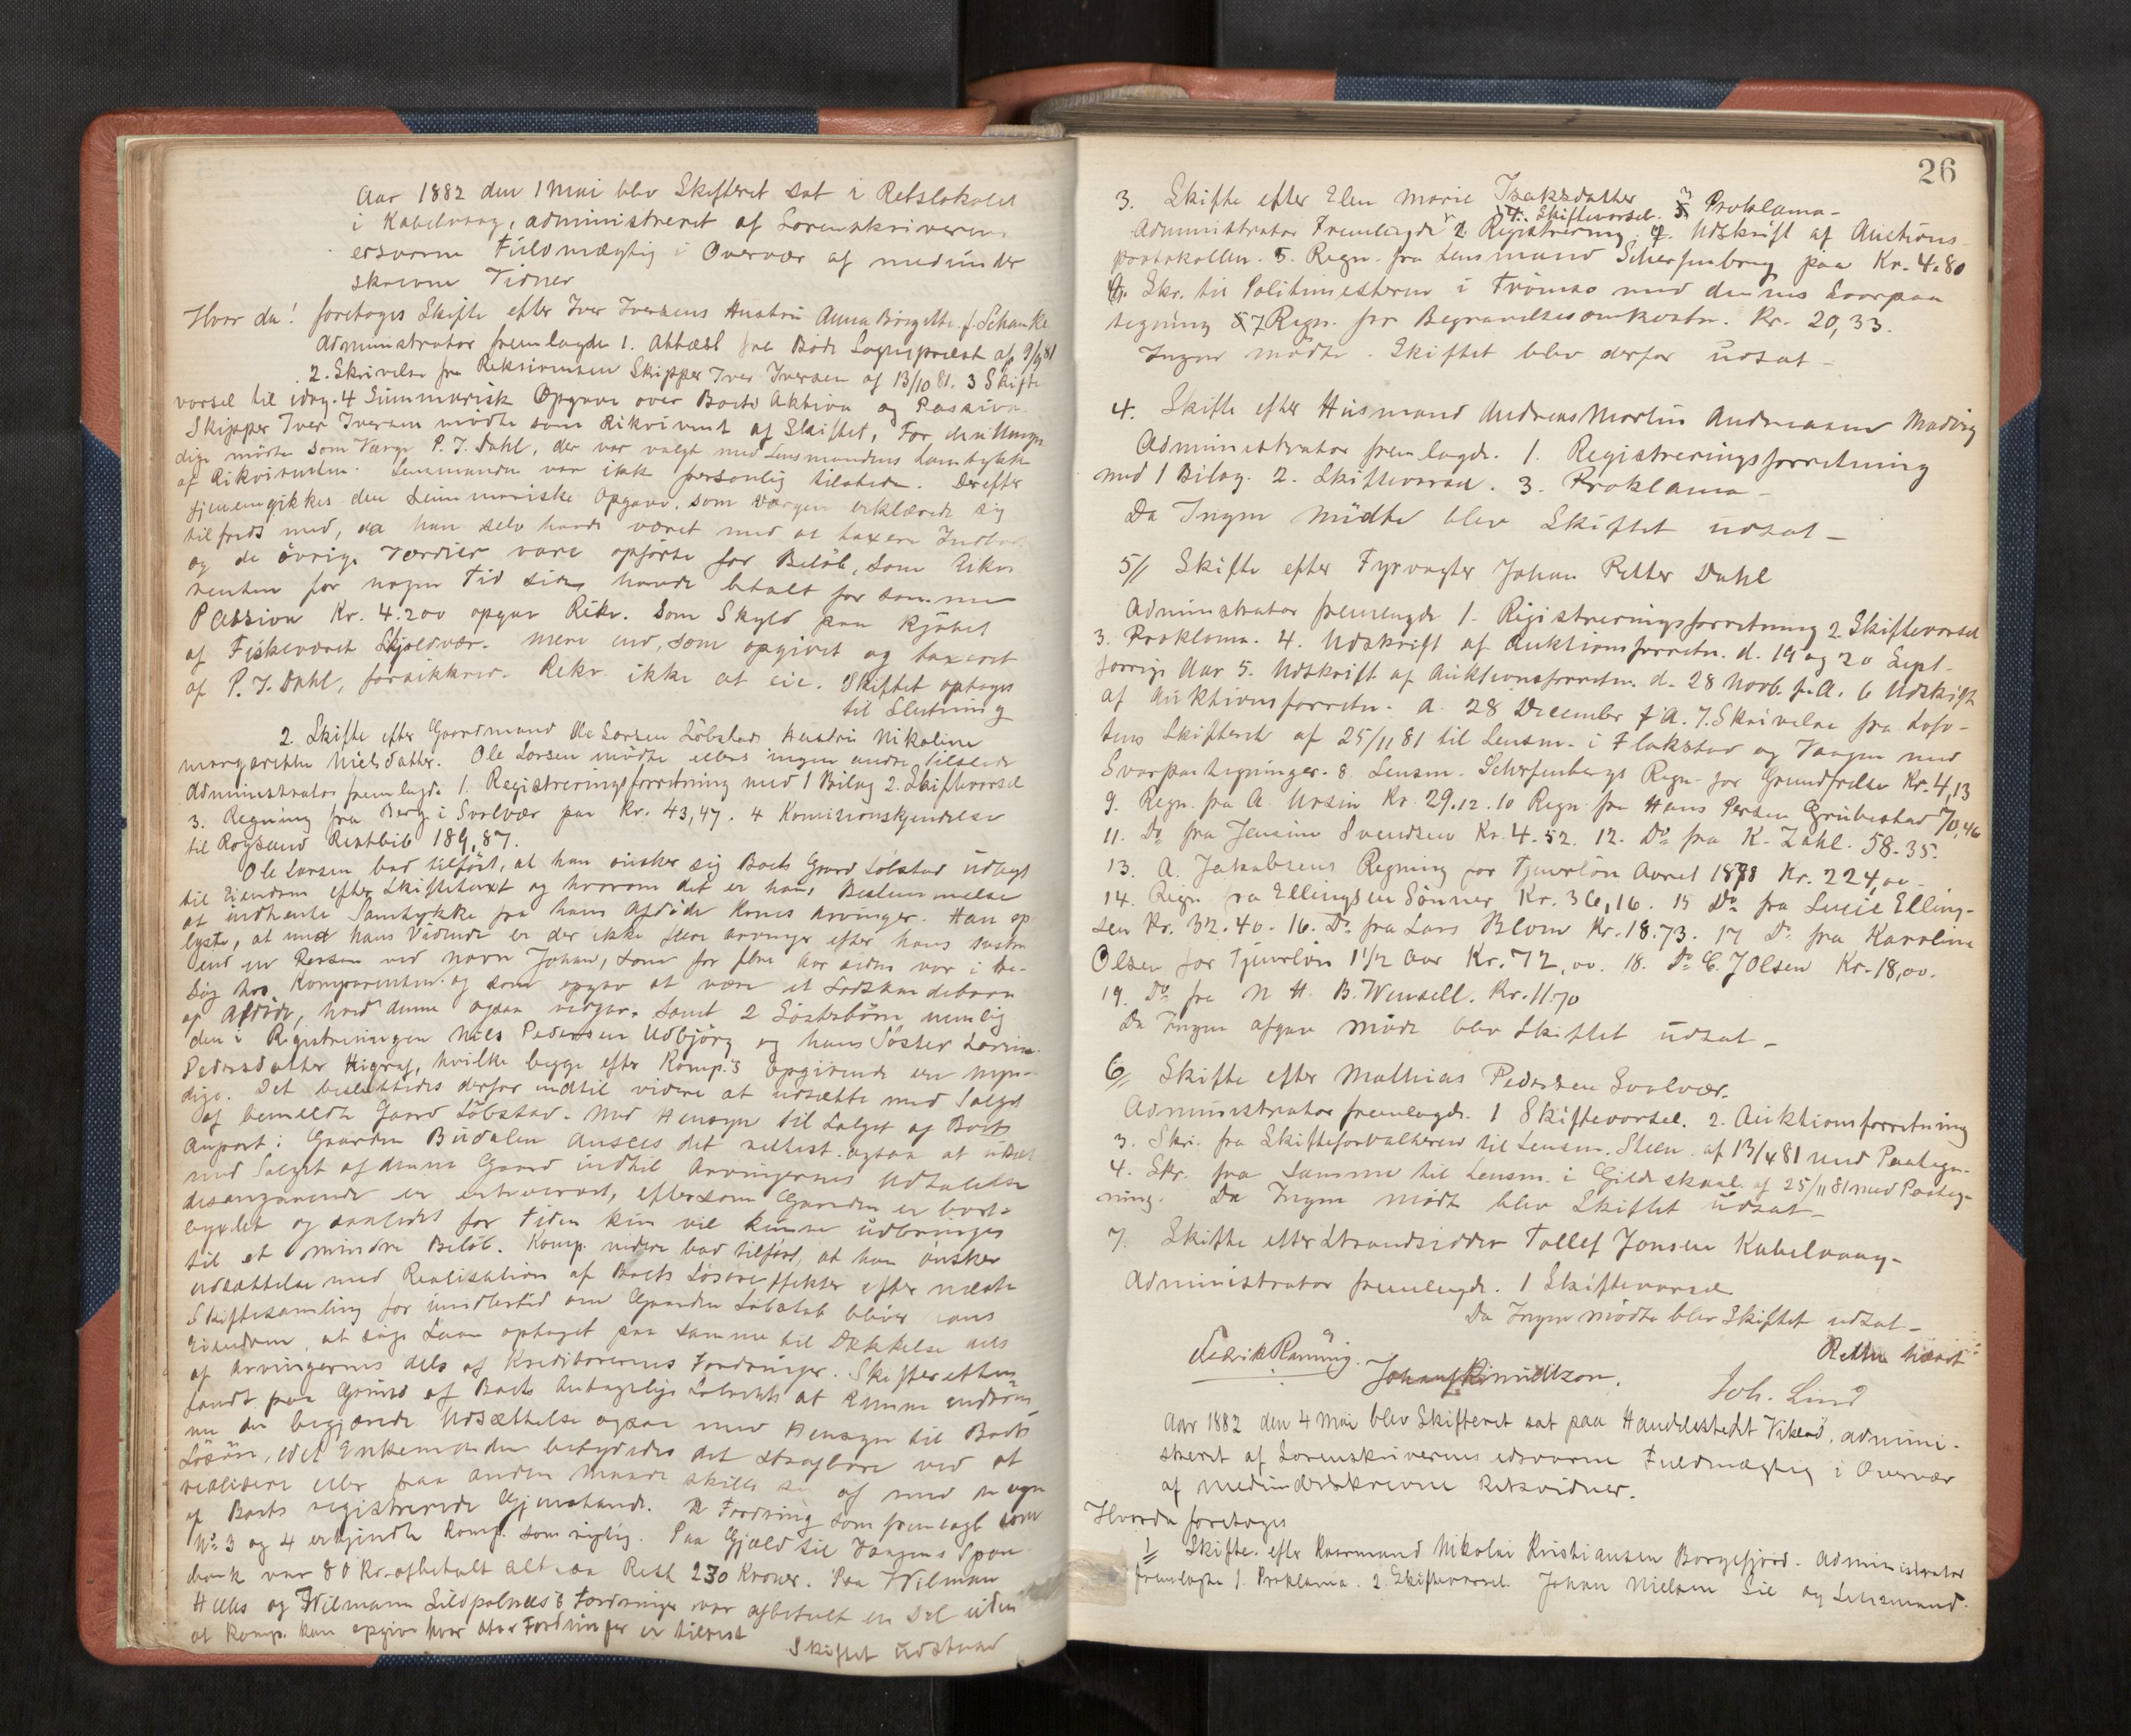 Aar 1882 den 1 Mai blev Skifteret sat i Retslokalet
i Kabelvaag, administreret af Sorenskriverens
edsvorne Fuldmægtig i Overvær af medunder
skrevne Vidner
Hvor da! foretoges Skifte efter Iver Iversens Hustru Anna Birgitte f. Schanke
Administrator fremlagde 1. Attest fra Bodø Sognepræst af 9/9 81
2. Skrivelse fra Rekvirenten Skipper Iver Iversen af 13/10 81. 3 Skifte
varsel til idag. 4 Summarisk Opgave over Boets Aktiva og Passiva
Skipper Iver Iversen mødte som Rekvirent af Skiftet, For den Umyn
dige mødte som Værge P. J. Dahl, der var valgt med Lensmandens Samtykke
af Rekvirenten. Lensmanden var ikke personlig tilstede. Derefter
gjennemgikkes den summariske Opgave, som værgen erklærede sig
tilfreds med, da han selv havde været med at taxere Indbo
og de øvrige Værdier vare opførte for Beløb, som Rekvi
renten for nogen Tid siden havde betalt for samme
Passiva Kr. 4.200 opgav Rekv. som Skyld paa Kjøbet
af Fiskeværet Skjoldvær. Mere end, som opgivet og taxeret
af P. J. Dahl, forsikkrer Rekv. ikke at eie. Skiftet optoges
til Slutning
2. Skifte efter Gaardmand Ole Larsen Løbstads Hustru Nikoline
Margarethe Nielsdatter. Ole Larsen mødte ellers ingen andre tilstede
Administrator fremlagde 1. Registreringsforretning med 1 Bilag 2. Skiftevarsel
3. Regning fra Berg i Svolvær paa Kr. 43,47. 4 Komissionskjendelse
til Restbeb 189,87.
Ole Larsen bad tilført, at han ønsker sig Boets Gaard Løbstad udlagt
til Eiendom efter Skiftetaxt og hvorom det er hans Bestemmelse
at indhente Samtykke fra hans Afdøde Kones Arvinger. Han op
lyste, at med hans Vidende er der ikke flere arvinger efter hans Hustru
end en Person ved navn Johan, som for flere Aar siden var i Be-
søg hos Komparenten og som opgav at være et
af Afdøde, hvad denne ogsaa vedgav. Samt 2 Søskebørn nemlig
den i Registreringen Nils Pedersen Udbjørg og hans Søster
Pedersdatter Higrav, hvilke begge efter Komp.'s Opgivende ere myn-
dige. Det besluttedes derfor indtil videre at udsætte med Salget
af bemeldte Gaard Løbstad. Med Hensyn til Salget af Boets
Anpart i Gaarden Budalen ansees det rettest ogsaa at udsæt
med Salget af denne Gaard indtil Arvingernes Udtalelse
desangaaende er erhvervet, eftersom Gaarden er bort-
byxlet og saaledes for Tiden kun vil kunne udbringes
til et mindre Beløb. Komp. videre bad tilført, at han ønsker
udsættelse med Realisation af Boets Løsøreeffekter efter næste
Skiftesamling for imidlertid om Gaarden Løbstad bliver hans
Eiendom, at søge Laan optaget paa samme til Dækkelse dels
af Arvingernes dels af Kreditorernes Fordringer. Skifteretten
fandt paa Grund af Boets Antagelige at kunne indrøm
me den begjærede Udsættelse ogsaa med Hensyn til Boets
Løsøre, idet Enkemanden betydedes det strafbare ved at
realisere eller paa anden Maade skille sig af med nogen
af Boets registrerede Gjenstande. De Fordring som fremlagt som
No 3 og 4 erkjendte Komp. som rigtig. Paa Gjæld til Vaagens Spare
bank var 80 Kr. afbetalt altsaa Rest 230 Kroner. Paa Wilman
og Wilmann Fordringer var afbetalt en Del uden
at Komp. kan opgive hvor stor Fordringer er tilrest
Skiftet udstaaer
26
3. Skifte efter Elen Marie Isaksdatter
Administrator Fremlagde 2 Registrering. 4. Skiftevarsel. 3 Proklama-
Udskrift af Auctions-
protokollen. 5. Regn. fra Lensmand Scherfenberg paa Kr. 4.80
6. Skr. til Politimesteren i Tromsø med dennes Svarpaa
tegning 7 Regn. for Begravelsesomkostn. Kr. 20,33.
Ingen mødte. Skiftet blev derfor udsat-
4. Skifte efter Husmand Andreas Martin Andreassen
Administrator fremlagde. 1. Registreringsforretning
med 1 Bilag. 2. Skiftevarsel. 3. Proklama-
Da Ingen Mødte blev Skiftet udsat-
5// Skifte efter Fyrvogter Johan Petter Dahl
Administrator fremlagde 1. Registreringsforretning 2. Skiftevarsel
3. Proklama. 4. Udskrift af Auktionsforretn. d. 19 og 20 Sept.
forrige Aar 5. Udskrift af Auktionsforretn. d. 28 Novb. f. A. 6 Udskrift
af Auktionsforretn. d. 28 December f A. 7. Skrivelse fra Lofo-
tens Skifteret af 25/11 81 til Lensm. i Flakstad og Vaagen med
Svarpaategninger. 8 Lensm. Scherfenbergs Regn. for Grundfrelse Kr. 4,13
9. Regn. fra A. Ursin Kr. 29.12. 10 Regn. fra Hans Persen Grubestad 70,46
11. Do fra Jensine Svendsen Kr. 4.52. 12. Do fra K. Zahl. 58.35.
13. A. Jakobsens Regning for Tjenerløn Aaret 1878 Kr. 224,00-
14. Regn. fra Ellingsen Sønner Kr. 36,16. 15 Do fra Lucie Elling-
sen Kr. 32.40. 16. Do fra Lars Blom Kr. 18.73. 17 Do fra Karoline
Olsen for Tjenerløn 1 1/2 Aar Kr. 72,00. 18. Do C. J Olsen Kr. 18,00.
19. Do fra N H. B. Wensell. Kr. 11.70
Da Ingen afgav Møde blev Skiftet udsat-
6// Skifte efter Mathias Pedersen Svolvær.
Administrator fremlagde. 1 Skiftevarsel. 2. Auktionsforretning
3. Skr. fra Skifteforvalteren til Lensm. Steen af 13/4 81 med Paategn-
4. Skr. fra samme til Lensm. i Gildeskaal af 25/11 81 med Paateg-
ning. Da Ingen mødte blev Skiftet udsat-
7. Skifte efter Strandsidder Tollef Jonsen Kabelvaag-
Administrator fremlagde. 1 Skiftevarsel
Da Ingen Mødte blev Skiftet udsat-
Retten hævet
Fredrik Rønning. Johan
Joh. Lind
Aar 1882 den 4 Mai blev Skifteret sat paa Handelsstedet, admini-
streret af Sorenskriverens edsvorne Fuldmægtig i Overvær
af medunderskrevne Retsvidner.
Hvorda foretoges
1 Skifte. efter Nikolai Kristiansen Borgefjord. Administrator
fremlagde 1. Proklama. 2. Skiftevarsel. Johan Nielsen Lie og Lensmand